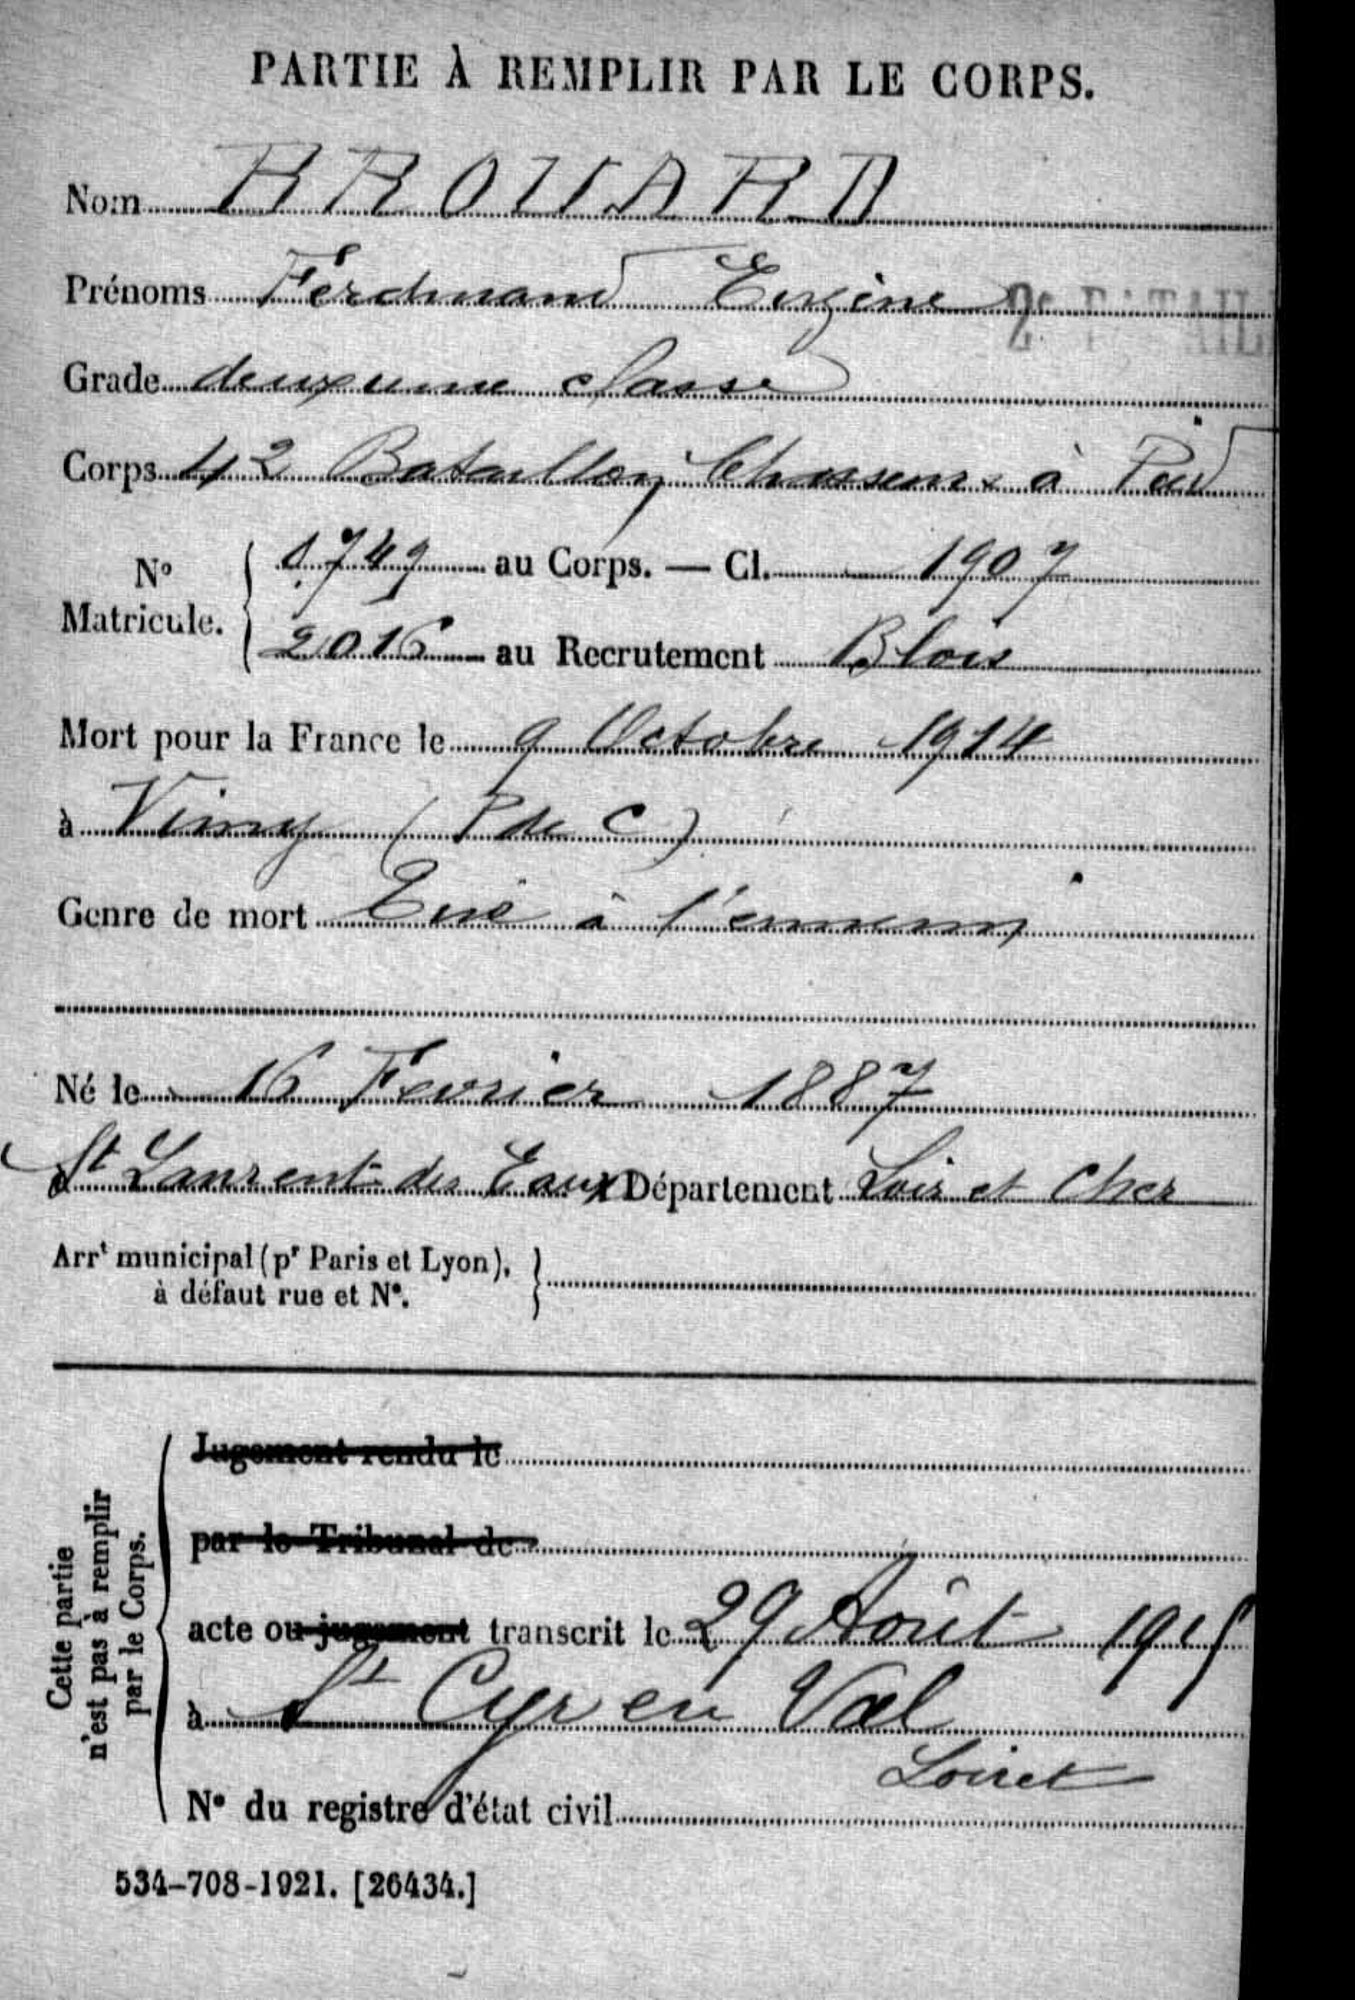 PARTIE À REMPLIR PAR LE CORPS.
Nom BROUARD
Prénoms Ferdinand Eugène
2e BATAILL
Grade deuxième classe
Corps 42 Bataillon Chasseurs à Pied
N° Matricule. { 1749 au Corps. — Cl. 1907
2016 au Recrutement Blois
Mort pour la France le 9 Octobre 1914
à Vimy (P de C)
Genre de mort Tué à l'ennemi
Né le 16 Fevrier 1887
St Laurent des Eaux Département Loir et Cher
Arrt municipal (pr Paris et Lyon), à défaut rue et N°. }
Cette partie n'est pas à remplir par le Corps.
Jugement rendu le
par le Tribunal de
acte ou jugement transcrit le 29 Août 1915
à St Cyr en Val
Loiret
N° du registre d'état civil
534-708-1921. [26434.]